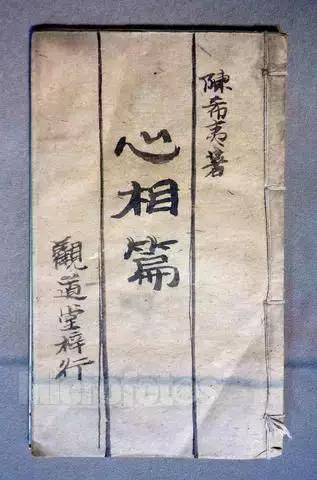 陳希夷著
心相篇
觀道堂梓行